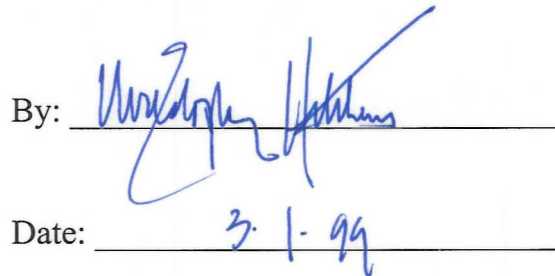 By: Christopher Hitchens
Date: 3. 1. 99